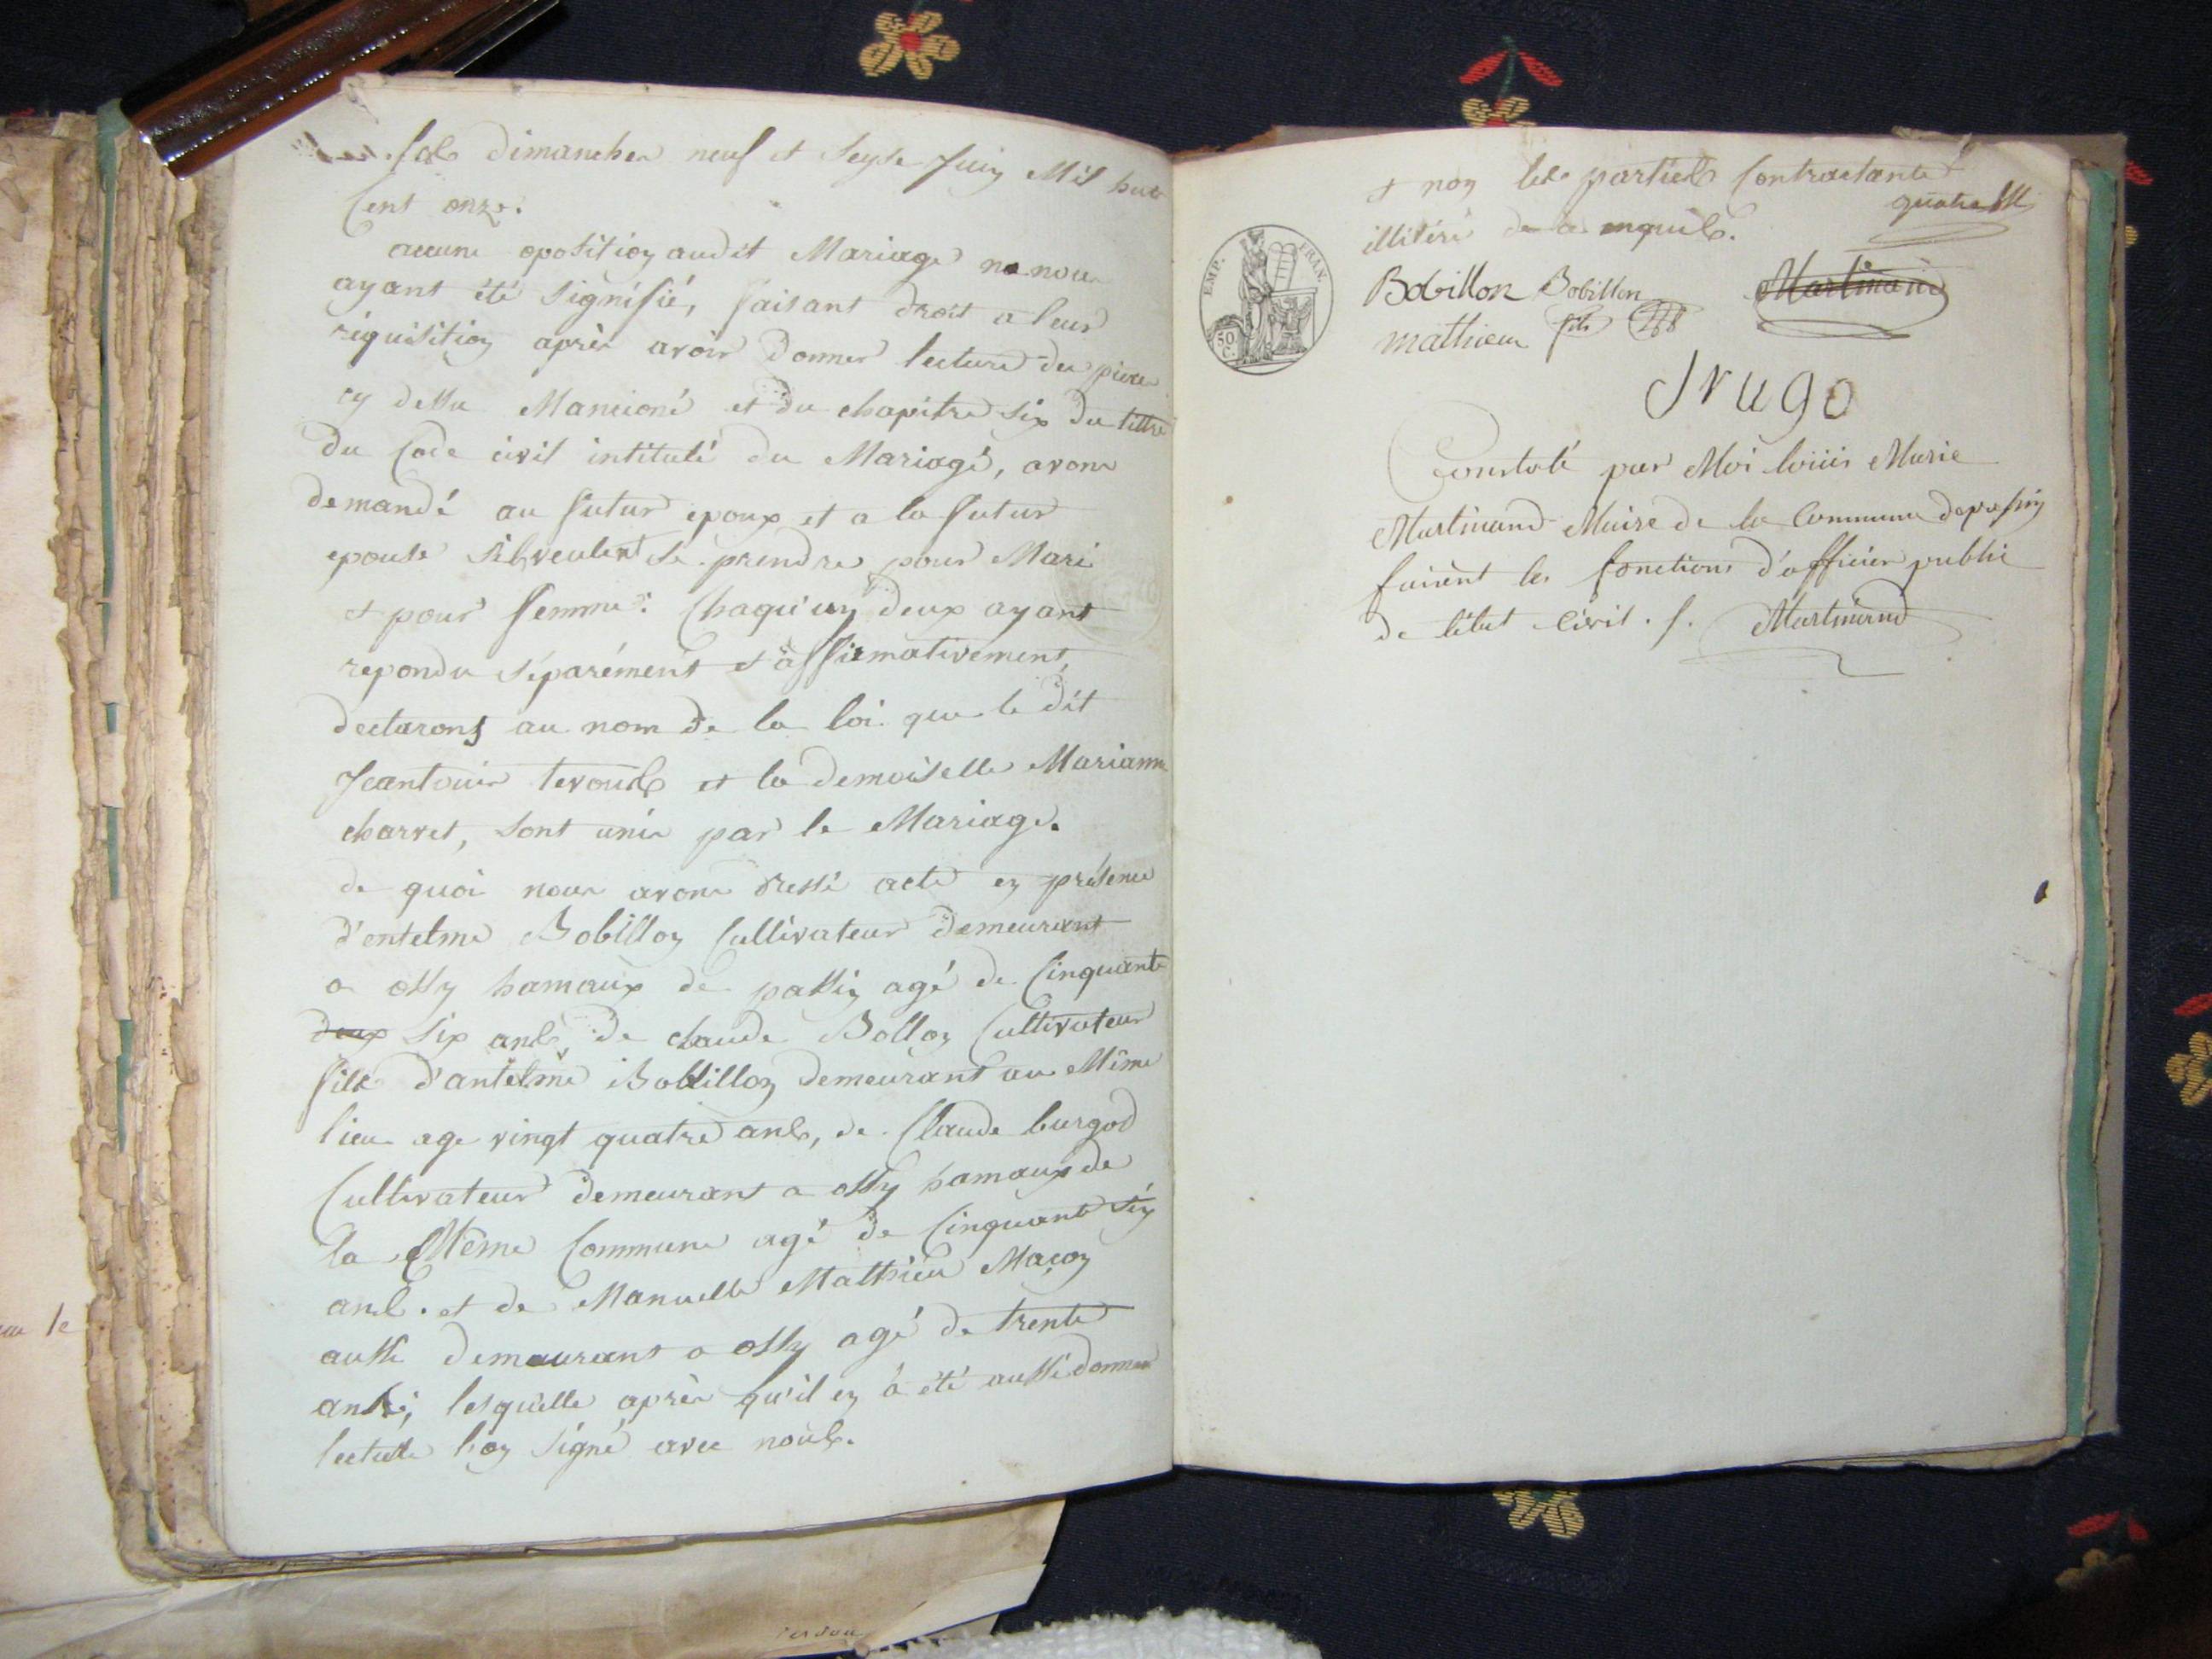 dimanches neuf et seyse Juin Mil huit
Cent onze.
aucune oposition audit Mariage ne nous
ayant été signifié, faisant droit a leur
réquisition après avoir donner lecture des pieces
cy dessu Mancioné et du chapitre six du littre
du Code civil intitulé du Mariagé, avons
demandé au futur epoux et a la futur
epouse s'ils veulent se prendre pour Mari
et pour femme: Chaqu'un deux ayant
repondu séparément et affirmativement,
declarons au nom de la loi que le dit
et la demoiselle Marianne
charvet, sont unis par le Mariage.
de quoi nous avons dressé acte en présence
d'entelme Bobillon Cultivateur demeurant
a ossy hamaux de passin agé de Cinquante
deux six ans, de claude Bollon Cultivateur
fils d'antelme Bobillon demeurant au Même
lieu age vingt quatre ans, de Claude burgod
Cultivateur demeurant a ossy hamaux de
la Même Commune agé de Cinquante six
ans. et de Manuelle Mathieu Maçon
aussi demaurant a ossy agé de trente
ans; lesquelle après qu'il en à été aussi donner
lecture l'on signé avec nous.
et non les parties Contractante
illitéré de ce enquis.
EMP. FRAN.
50 C.
Bobillon Bobillon
mathieu fils
Martinand
Constaté par Moi louis Marie
Martinand Maire de la Commune de passin
faisant les fonctions d'officier public
de l'état Civil. /. Martinand